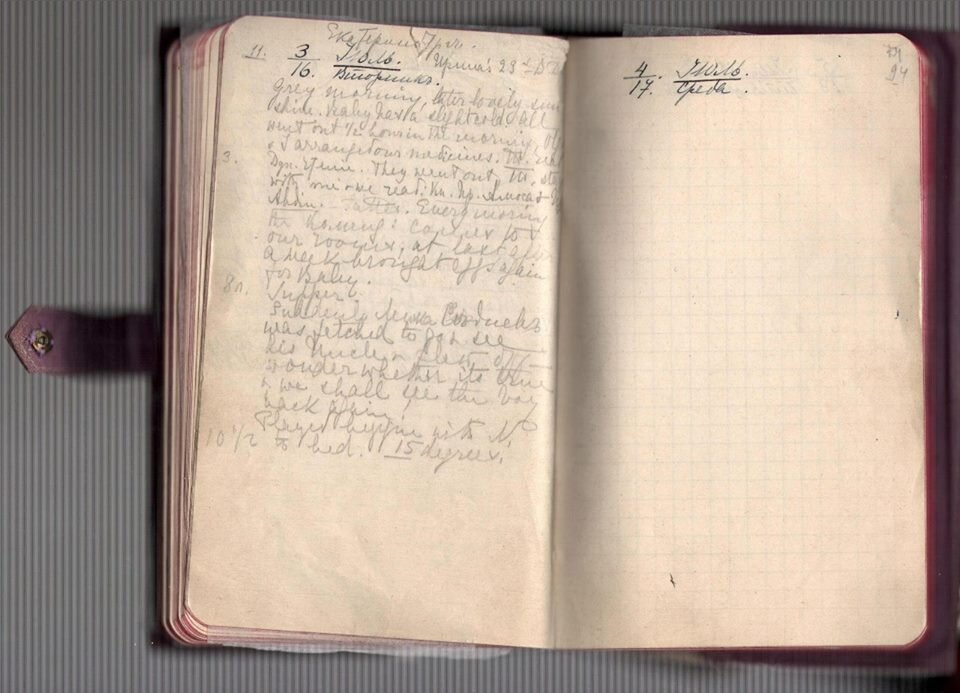 Екатеринбург.
11. 3/16. Июль. Вторникъ. Irina's 23d BD
Grey morning, later lovely sun
shine. Baby has a slight cold. All
went out 1/2 hour in the morning, Ol
& I arranged our medicines. T. read
3. Spir. . They went out, T. stay
with me & we read: Кн. Пр. Амоса &
Авдія. Tatted. Every morning
the Komend: comes to
our rooms, at last after
a week brought eggs again
for Baby.
8h. Supper.
Suddenly
was fetched to go & see
his Uncle & flew off
wonder whether its true
& we shall see the boy
back again!
Played bezique with N
10 1/2 to bed. 15 degrees.
4/17. Июль.
Среда.
94